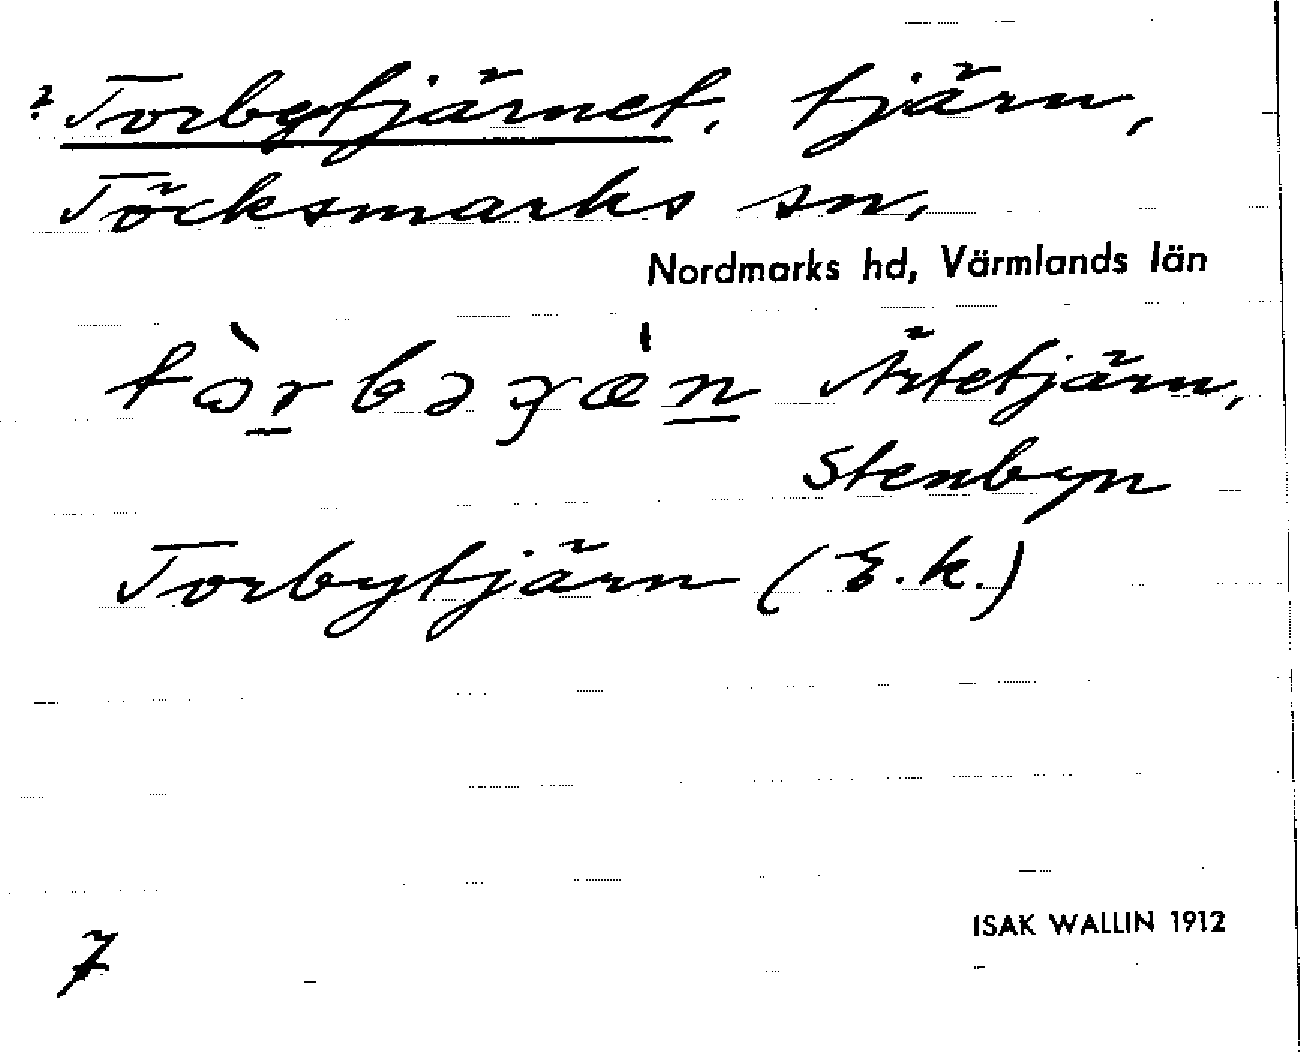 ? Torbytjärnet, tjärn,
Töcksmarks sn,
Nordmarks hd, Värmlands län
Ärtetjärn,
Stenbyn
Torbytjärn (E.k.)
ISAK WALLIN 1912
7